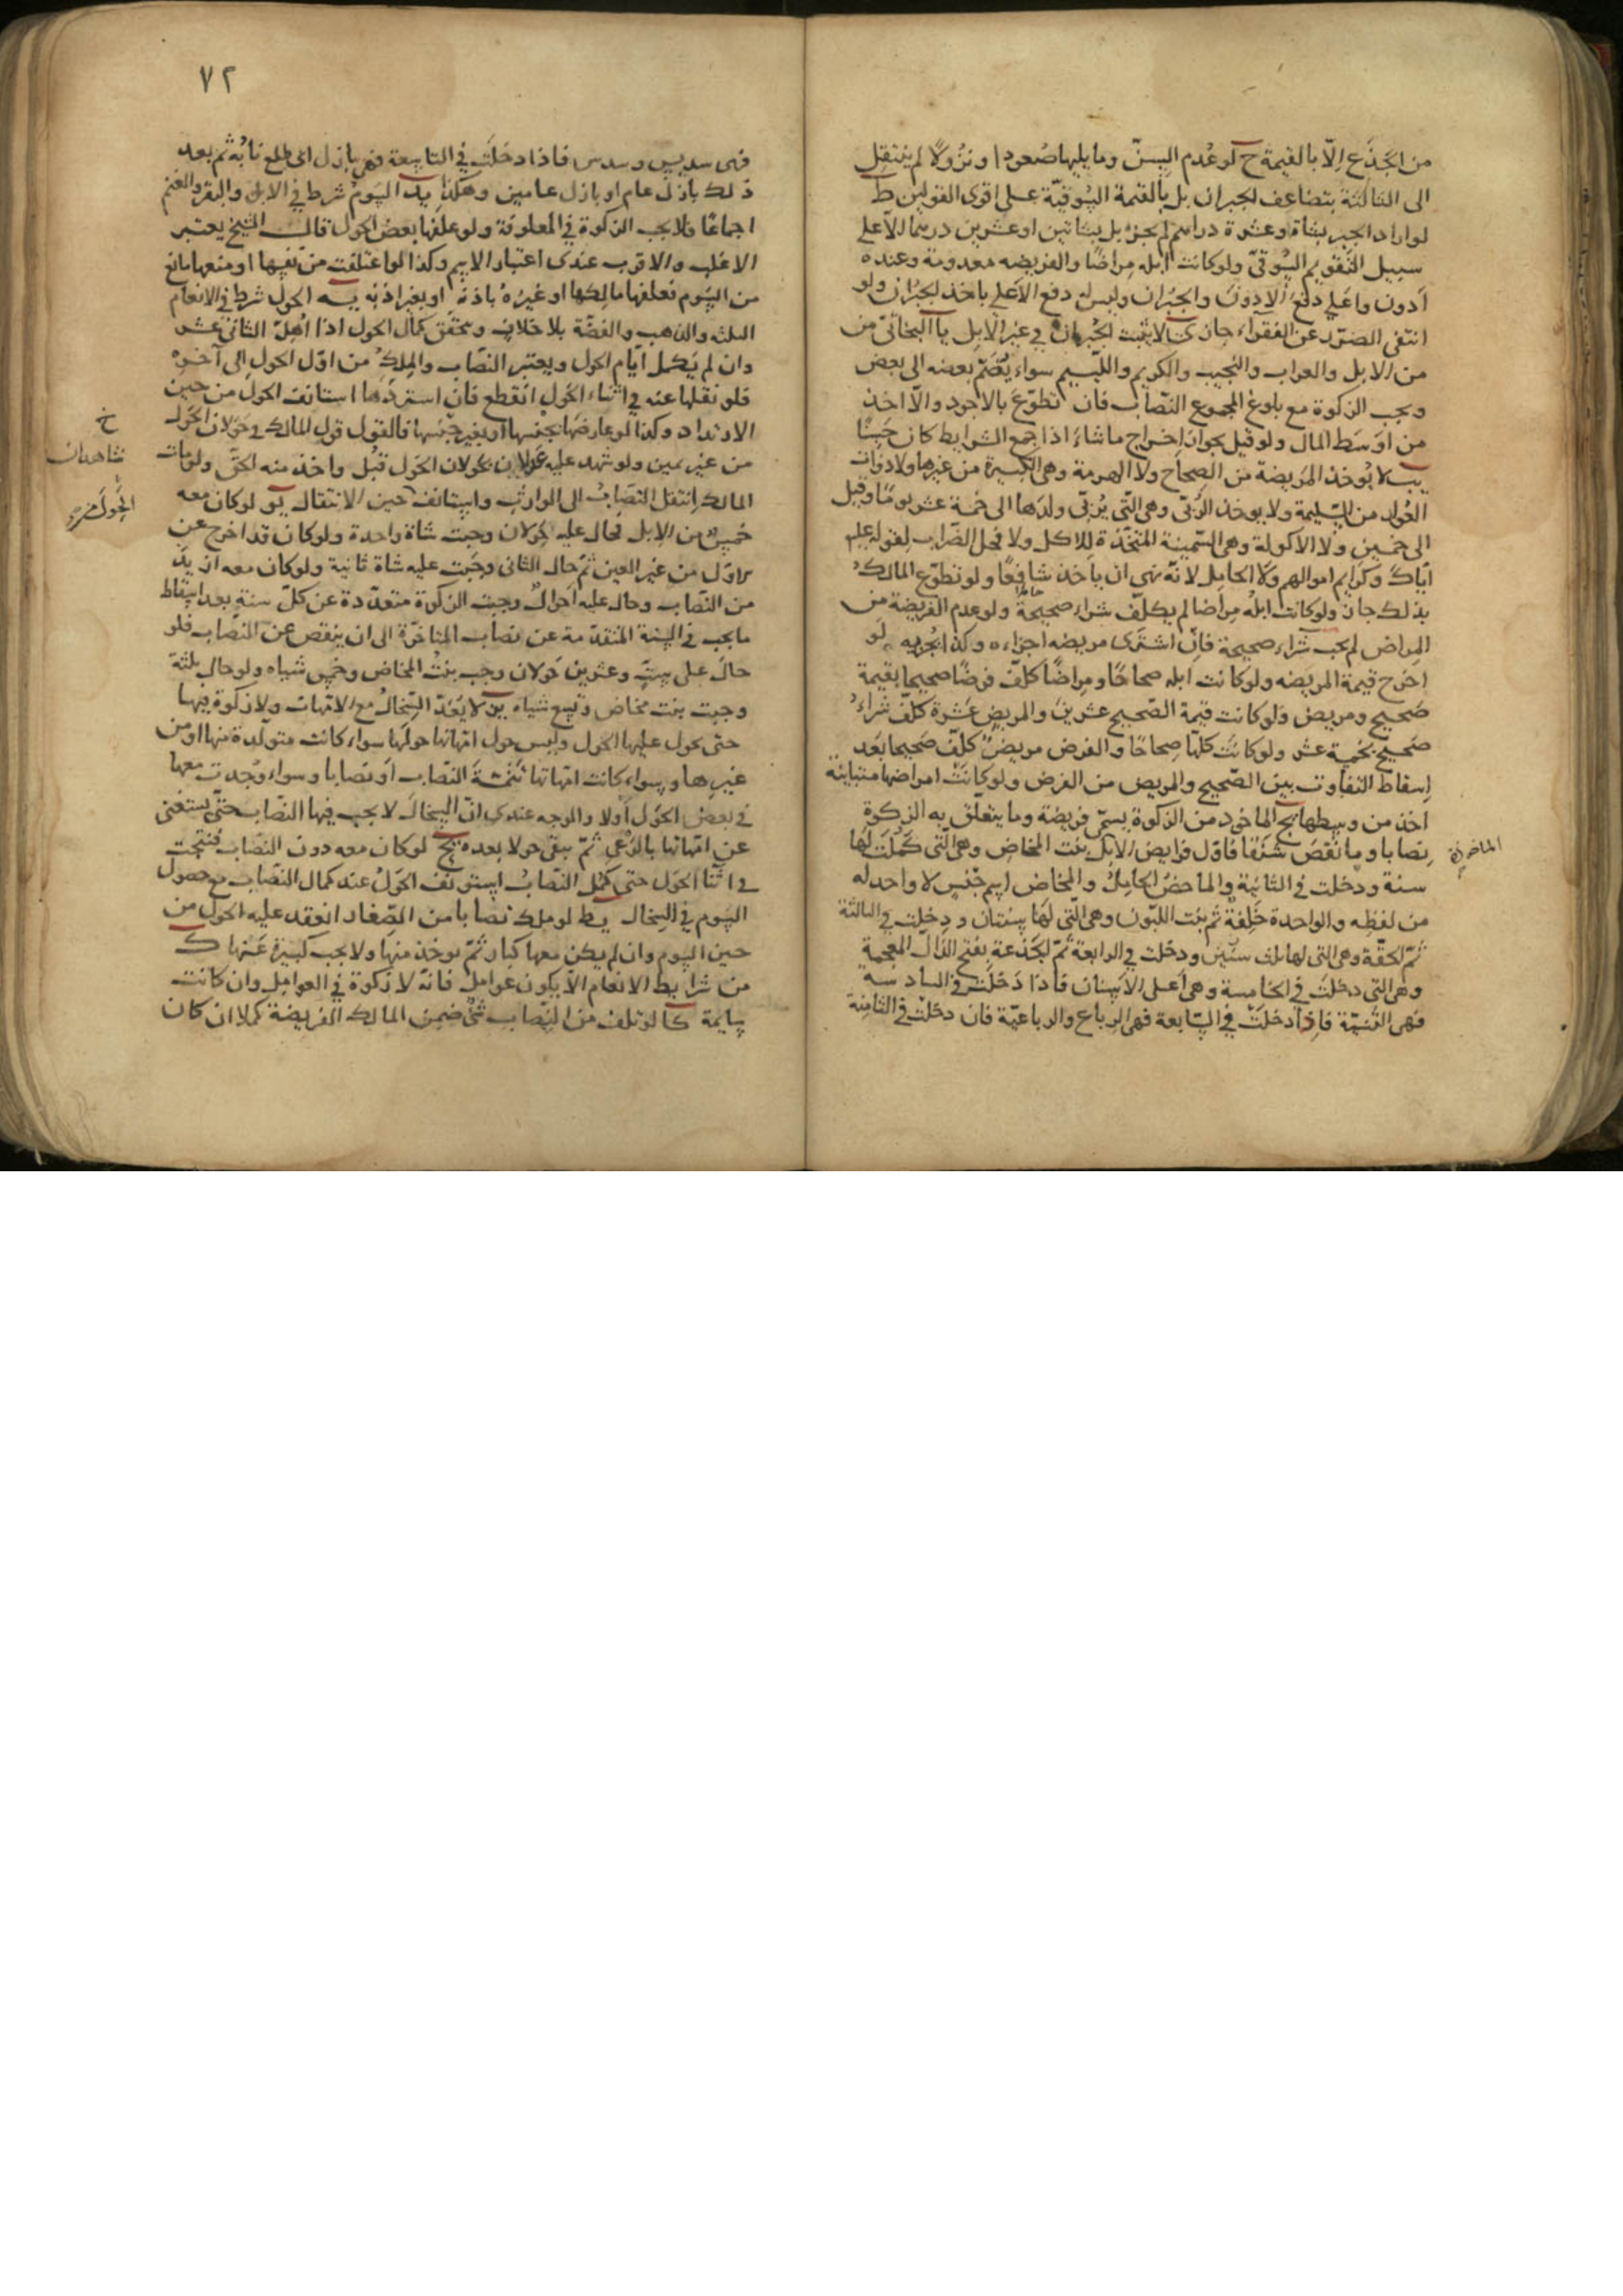 من الجَذَع الّا بالقيمة ح لو عُدم السنّ وما يليها صُعودا ونزُولاً لم ينتقل
الى الثالثة بتضاعف الجبران بل بالقيمة السُوقيّة على اقوى القولين ط
لو اراد الجبر بشاة وعشرة دراهم لم يجز بل بشاتين او عشرين درهما الا على
سبيل التقويم السُوقىّ ولو كانت ابله مِراضًا والفريضه معدومة وعنده
أدون واعلى دفع الأدون والجبران وليس له دفع الأعلى باخذ الجبران ولو
انتفى الضرر عن الفقراء جاز ى لا يثبت الجُبران في غير الابل يا البخاتىّ من
من الابل والعراب والنجيب والكريم واللّئيم سواء يُضَمّ بعضه الى بعض
ويجب الزكوة مع بلوغ المجموع النصاب فان تطوّع بالاجود والّا اخذ
من اوسَط المال ولو قيل بجواز اخراج ما شاءَ اذا جمع الشرايط كان حَسنًا
يب لا يُوخذ المَريضة من الصحاح ولا الهرمة وهى الكبيرة من غيرها ولا ذوات
العُوار من السّليمة ولا يوخذ الرُبّى وهى الّتى يُربّى ولدَها الى خمسة عشر يومًا وقيل
الى خمسين ولا الاكولة وهى السّمينة المتّخذة للاكل ولا فحل الضّراب لقوله عليم
ايّاك وكرايم اموالهم ولا الحامِل لانّه نهى ان يأخذ شافِعًا ولو تطوّع المالك
بذلك جاز ولو كانت ابلُه مِراضا لم يكلّف شراء صحيحة ولو عدم الفريضة من
المِراض لم يجب شراء صحيحة فان اشترى مريضه اجزاءه وكذا يجزيه لو
اخرج قيمة المريضه ولو كانت ابله صحاحًا ومِراضًا كلّف فرضًا صحيحا بقيمة
صَحيح ومريض ولو كانت قيمة الصّحيح عشرينَ والمريض عَشرة كلّف شراءُ
صحيح بخمسة عشر ولو كانَت كلّها صِحاحًا والفرض مريض كلّف صَحيحا بعَد
إسقاط التفاوت بين الصّحيح والمريض من الفرض ولو كانَت امراضها متباينة
اخذ من وسطها يج الماخوذ من الزكوة يسمّى فريضة وما يتعلّق به الزكوة
نصابا وما نقصَ شنَقا فاوّل فرايض الابل بنت المخاض وهى الّتى كَمُلَت لَها
سنة ودخلت في الثانية والماخض الحامِلُ والمخاض اسم جنس لا واحد له
من لفظه والواحدة خَلِفة ثم بنت اللبّون وهى الّتى لَها سنتان ودخلت في الثالثة
ثمّ الحقّة وهى التى لها ثلث سنين ودخلت في الرابعة ثمّ الجَذعة بفتح الذال المعجمة
وهى التى دخلَت في الخامسة وهى أعلى الاسنان فاذا دَخلَت في السادسة
فهى الثّنيّة فاذا دخلَت في السّابعة فهى الرباع والرباعيّة فان دخلَت في الثامنة
٧٢
فهى سديس وسدس فاذا دخلَت في التاسعة فهى بازل اى طلع نابُه ثم بعد
ذلك بازل عام او بازل عامين وهكذا يد السَومُ شرط في الابل والبقر والغنم
اجماعًا فلا يجب الزكوة في المعلوفة ولو علفَها بعض الحول قال الشيخ يعتبر
الاغلب والاقرب عندى اعتبار الاسم وكذا لو اعتلفت من نفسها او منعها مانع
من السَوم فعلفها مالِكها او غيرُه باذنه او بغير اذنه يه الحول شرط في الانعام
الثلثه والذهب والفضّة بلا خلاف ويتحقّق كمال الحول اذا اهلّ الثاني عشر
وان لم يَكمل ايّام الحول ويعتبر النصَاب والمِلك من اوّل الحول الى آخره
فلو نقلها عنه في اثناء الحَول انقطع فان استردّها استانف الحول من حين
الارتداد وكذا لو عارضَها بجنسِها او بغير جنسها فالقول قول المالك في حَولان الحَول
من غير يمين ولو شهد عليه عدلان بحولان الحَول قُبل واخذ منه الحقّ ولو مات
المالك انتقل النصَابُ الى الوارث واستانف حين الانتقال يو لو كان معه
خمس من الابل فحال عليه حَولان وجبت شاة واحدة ولو كان قد اخرج عن
الاوّل من غير العين ثمّ حال الثانى وجَبت عليه شاة ثانية ولو كان معه ازيد
من النصَاب وحال عليه احوال وجبت الزكوة متعدّدة عن كلّ سنة بعد اسقاط
ما يجب في السنة المتقدّمة عن نصاب المتاخرّة الى ان ينقص عن النصَاب فلو
حالَ على ستّ وعشرين حَولان وجب بنتُ المخاض وخمس شياه ولو حال ثلثة
وجبت بنت مخاض وتسع شياه يز لا يُعَدّ السّخالُ مع الامّهات ولا زكوة فيها
حتى يحول عليها الحَول وليس حول امّهاتها حولَها سواء كانت متولّدة منها او من
غيرها وسواء كانت امّهاتها تتمّة النصَاب أو نصابا وسواء وُجدت معها
في بعض الحَول أولا والوجه عندى انّ السخالَ لا يجب فيها النصَاب حتّى يستغنى
عن امّهاتها بالرّعى ثمّ يبقى حولا بعده يح لو كان معه دون النصَاب فنتجت
في اثنا الحَول حتى كمل النصَابُ استونف الحَولُ عند كمال النصَاب مع حصول
السَوم في السِخال يط لو ملك نصابا من الصّغار انعقد عليه الحول من
حين السوم وان لم يكن معها كبار ثمّ يوخذ منها ولا يجب كبيرة عَنها ك
من شرايط الانعام الّا يكون عوامِل فانّه لا زكوة في العوامِل وان كانت
سايمة كا لو تلف من النصَاب شئ ضمن المالك الفريضة كملا ان كان
خ
شاهدان